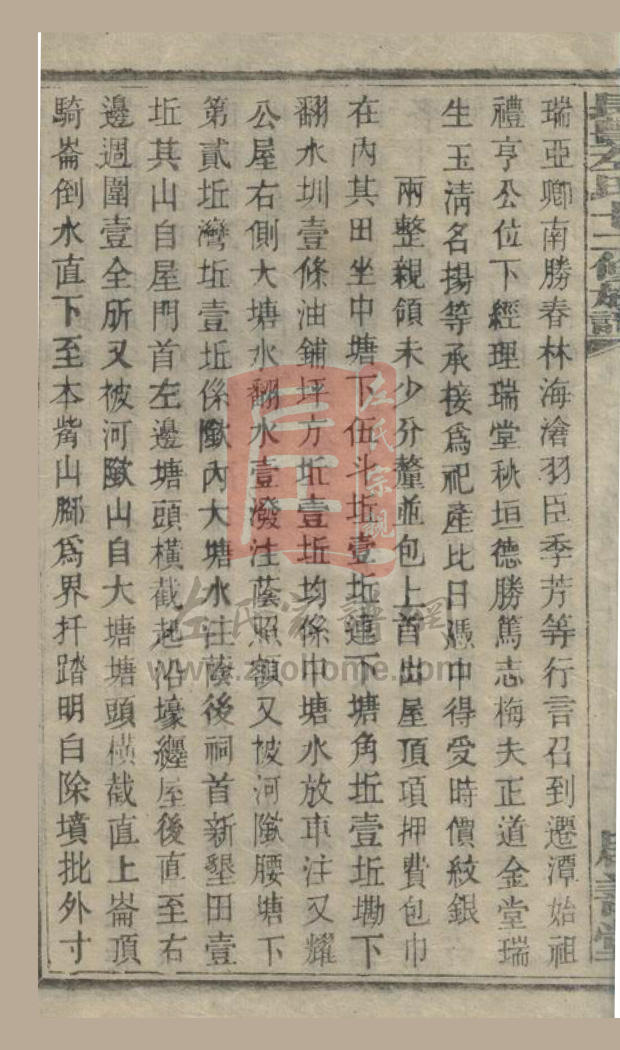 瑞亞卿南勝春林海滄羽臣季芳等行言召到遷潭始祖
禮亨公位下經理瑞堂秋垣德勝篤志梅夫正道金堂瑞
生玉清名揚等承接爲祀產比日憑中得受時價紋銀
兩整親領未少分釐並包上首出屋頂項押費包巾
在內其田坐中塘下伍斗坵壹坵連下塘角坵壹坵墈下
翻水圳壹條油鋪坪方坵壹坵均係中塘水放車注又耀
公屋右側大塘水翻水壹潑注蔭照額又被河陰腰塘下
第貳坵灣坵壹坵係陰內大塘水注蔭後祠首新墾田壹
坵其山自屋門首左邊塘頭橫截起沿壕纏屋後直至右
邊週圍壹全所又被河陰山自大塘塘頭橫截直上崙頂
騎崙倒水直下至本嘴山腳爲界扦踏明白除墳批外寸
左氏宗親
左氏家譜網
www.zuohome.com